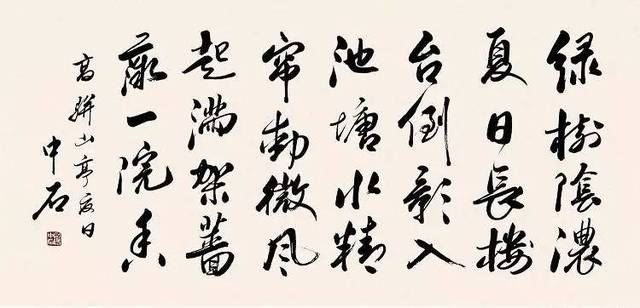 绿樹陰濃
夏日長樓
台倒影入
池塘水精
帘動微风
起滿架薔
薇一院香
高駢山亭夏日
中石